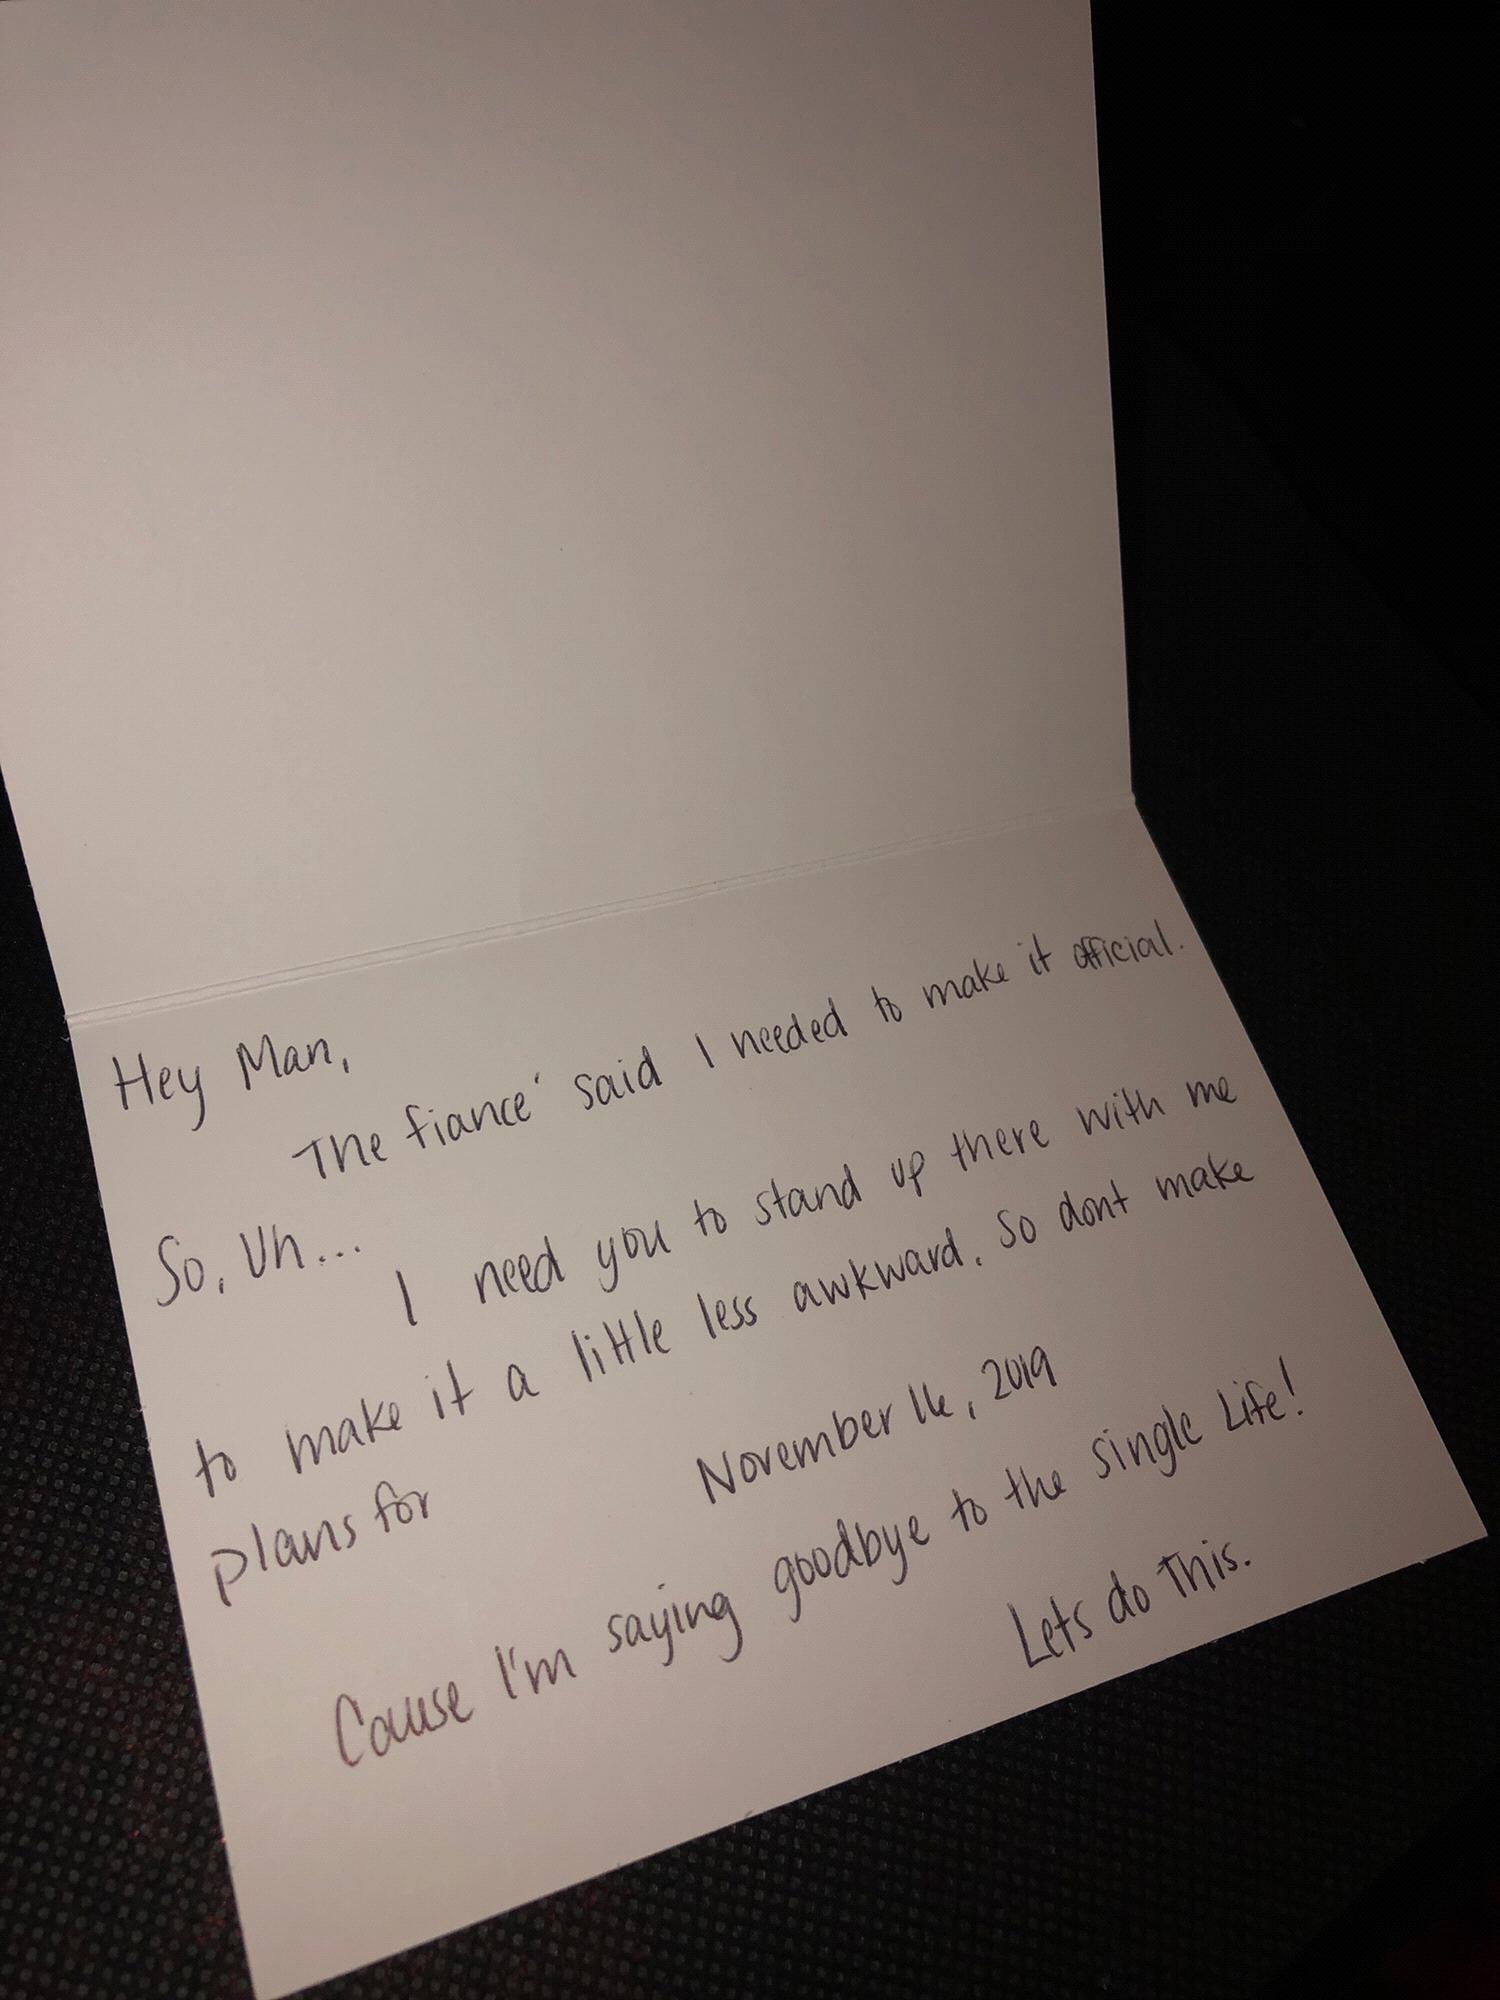 Hey Man,
The fiance' said I needed to make it official.
So, Uh...
I need you to stand up there with me
to make it a little less awkward. So dont make
plans for
November 16, 2019
Cause I'm saying goodbye to the single Life!
Lets do This.